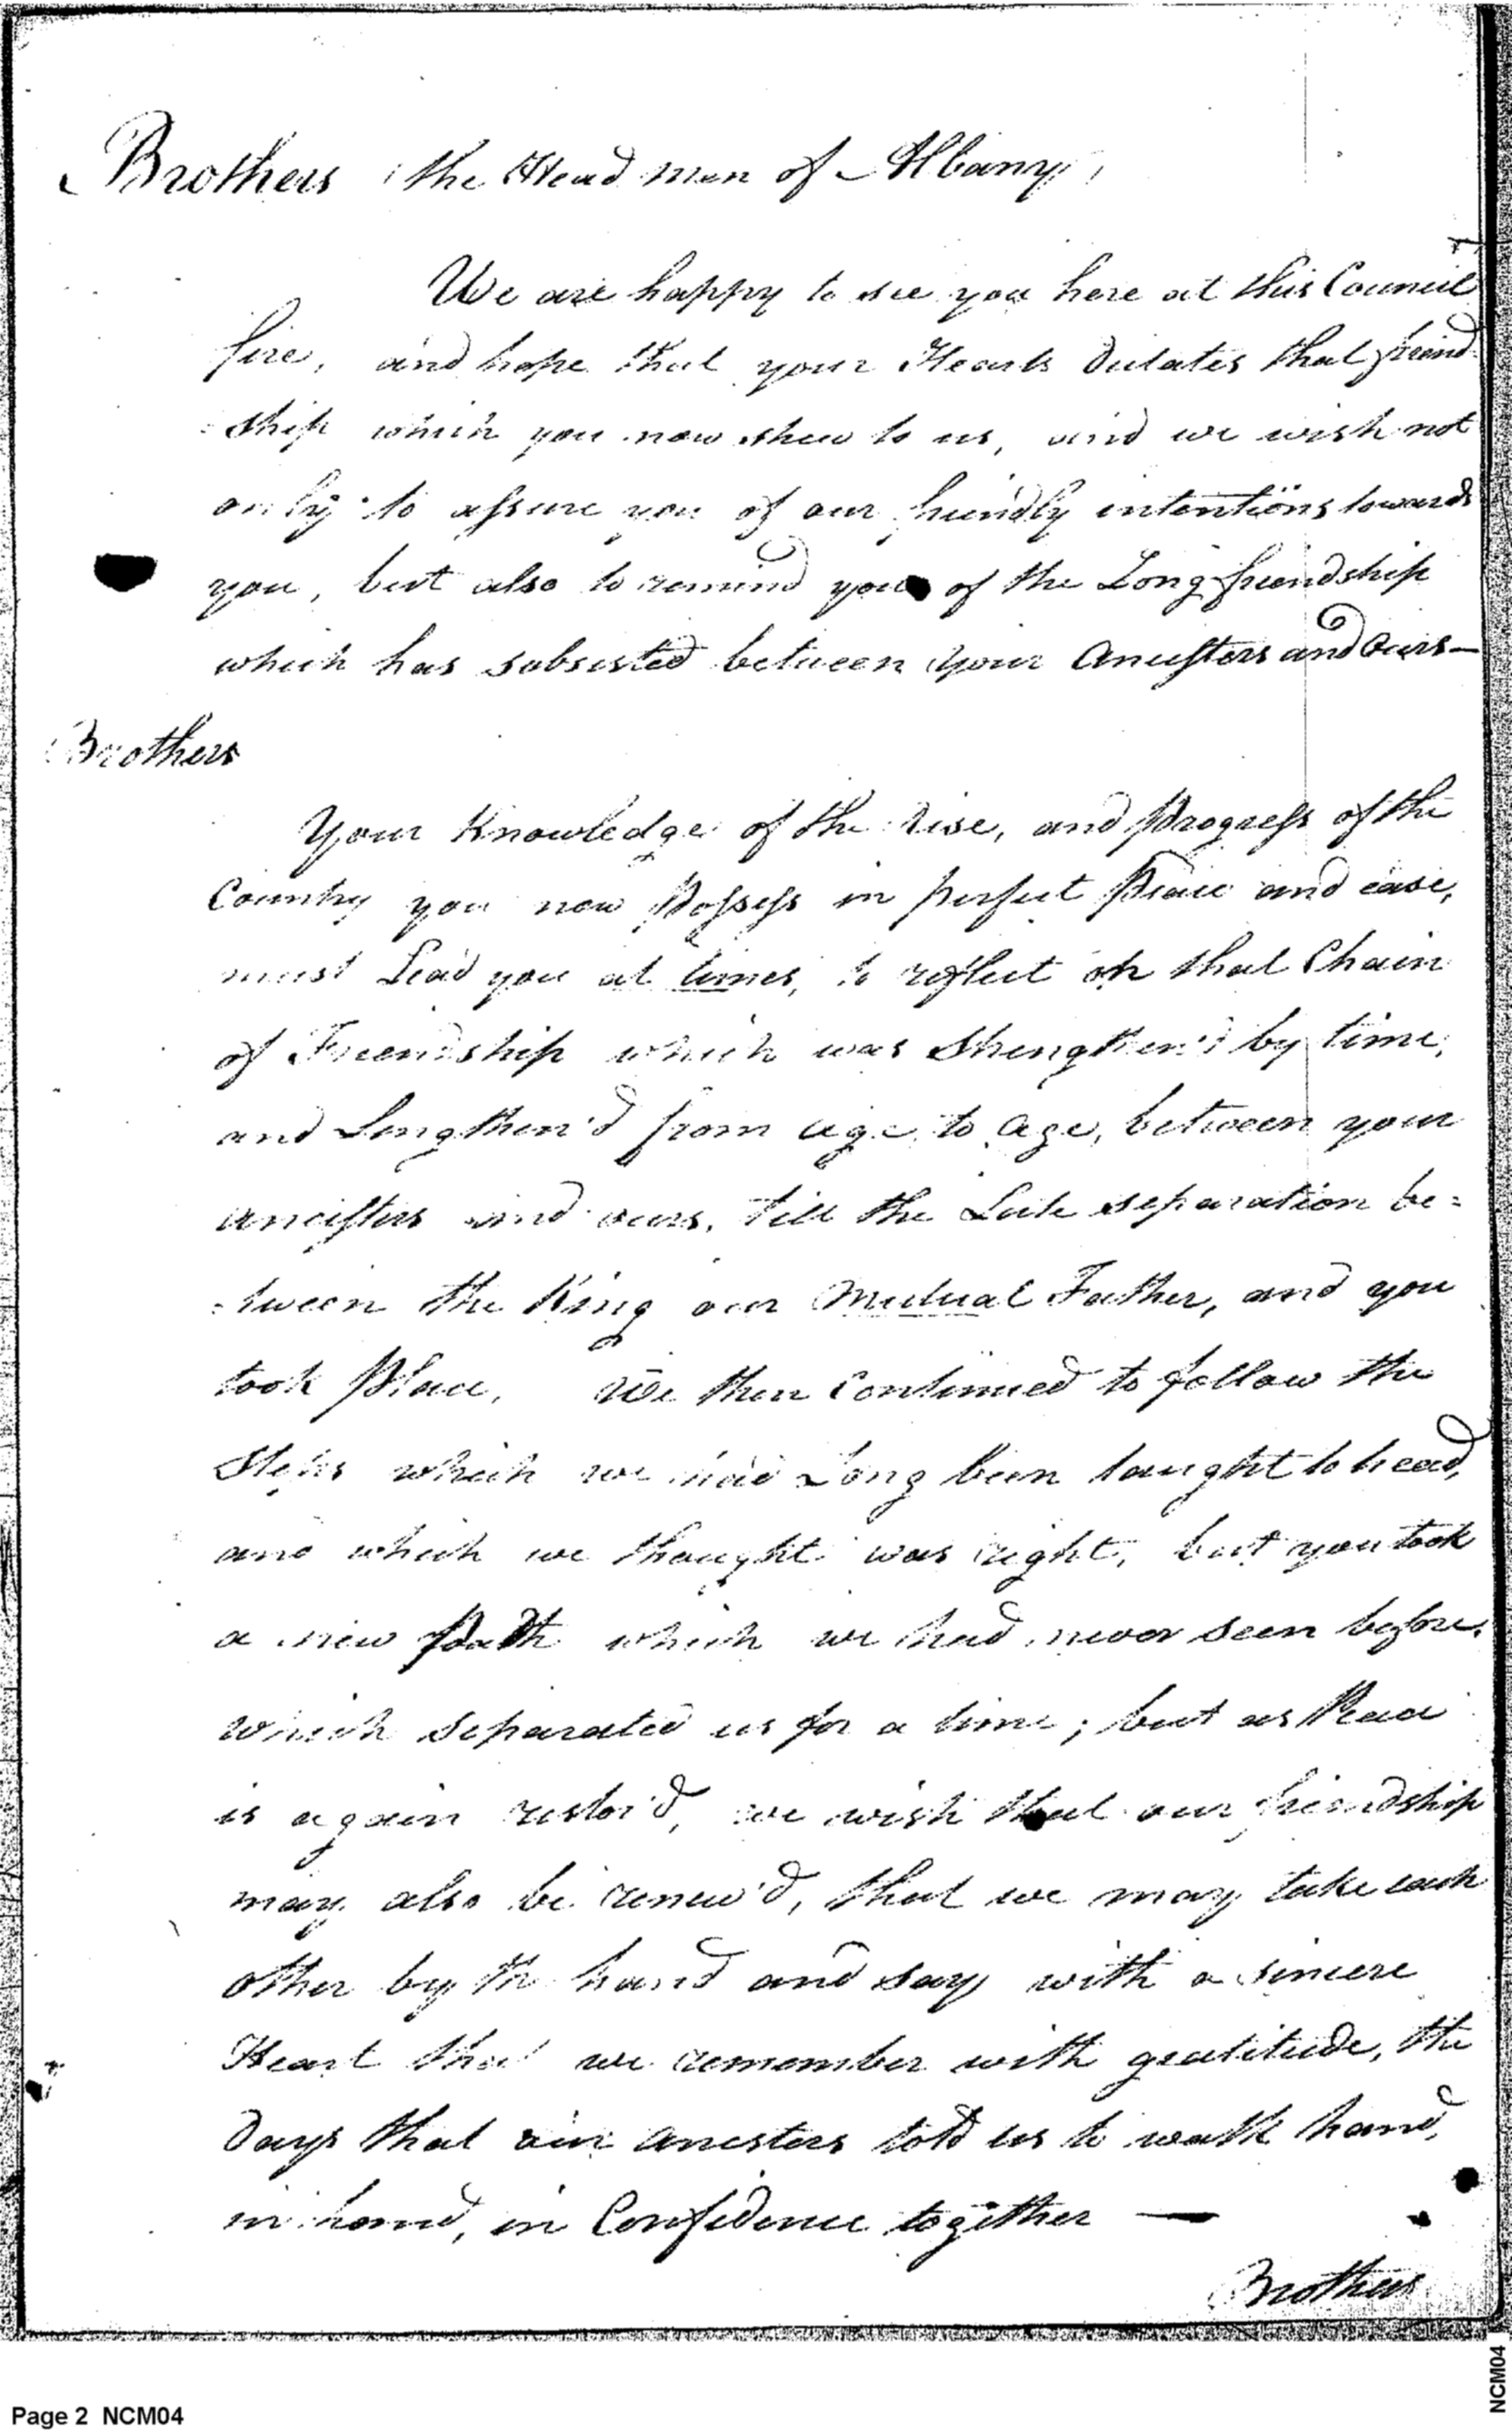 Brothers the Head men of Albany,
We are happy to see you here at this Council
fire, and hope that your Hearts Dictates that friend-
-ship which you now shew to us, and we wish not
only to assure you of our friendly intentions towards
you, but also to remind you of the Long friendship
which has subsisted between your Ancestors and Ours—
Brothers
Your Knowledge of the rise, and Progress of the
Country you now Possess in perfect Peace and ease,
must Lead you at times, to reflect on that Chain
of Friendship which was Strengthen'd by time,
and Lengthen'd from age to age, between your
ancestors and ours, till the Late separation be=
=tween the King our Mutual Father, and you
took Place, We then Continued to follow the
Steps which we had Long been taught to
and which we thought was right, but you took
a new Path which we had never seen before,
which separated us for a time; but as Peace
is again restor'd, we wish that our friendship
may also be renew'd, that we may take each
other by the hand and say with a sincere
Heart that we remember with gratitude, the
Days that our ancestors told us to walk hand,
in hand, in Confidence together —
Brothers
Page 2 NCM04
NCM04